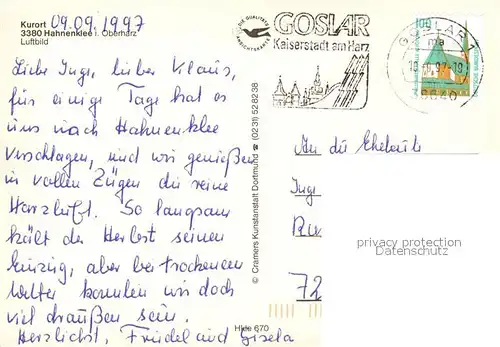 Kurort
3380 Hahnenklee i. Oberharz
Luftbild
09.09.1997
Liebe Inge, lieber Klaus,
für einige Tage hat es
uns nach Hahnenklee
verschlagen, und wir genießen
in vollen Zügen die reine
Harzluft. So langsam
hält der Herbst seinen
Einzug, aber bei trockenem
Wetter konnten wir doch
viel draußen sein.
Herzlichst, Friedel und Gisela
© Cramers Kunstanstalt Dortmund ☎ (0231) 528238
Hkle 670
GOSLAR
Kaiserstadt am Harz
GOSLAR 1
ma
38640
100
An die Eheleute
Inge
72
privacy protection
Datenschutz